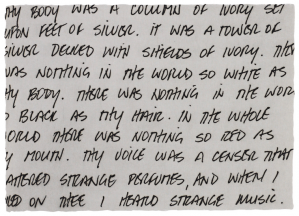 THY BODY WAS A COLUMN OF IVORY SET
UPON FEET OF SILVER. IT WAS A TOWER OF
SILVER DECKED WITH SHIELDS OF IVORY. THE
WAS NOTHING IN THE WORLD SO WHITE AS
HY BODY. THERE WAS NOTHING IN THE WOR
O BLACK AS THY HAIR. IN THE WHOLE
ORLD THERE WAS NOTHING SO RED AS
Y MOUTH. THY VOICE WAS A CENSER THAT
ATTERED STRANGE PERFUMES, AND WHEN I
KED ON THEE I HEARD STRANGE MUSIC.